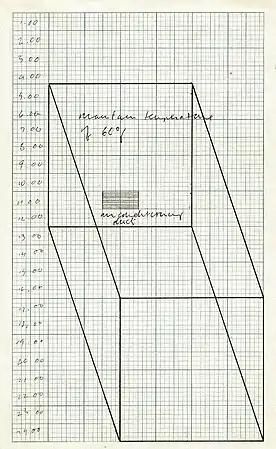 1.00
2.00
3.00
4.00
5.00
6.00
maintain temperature
7.00
of 60°F
8.00
9.00
10.00
11.00
12.00
airconditioning
duct
13.00
14.00
15.00
16.00
17.00
18.00
19.00
20.00
21.00
22.00
23.00
24.00